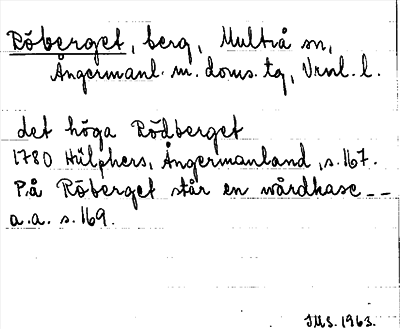 Röberget, berg, Multrå sn,
Ångermanl. m. doms. tg, Vrnl. l.
det höga Rödberget
1780 Hülphers, Ångermanland, s. 167.
På Röberget står en wårdkase --
a.a. s. 169.
JMS. 1963.